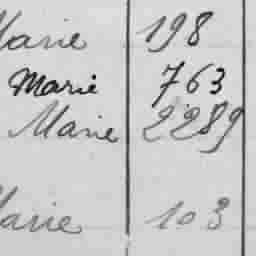 Marie 198
Marie 763
Marie 2289
Marie 103